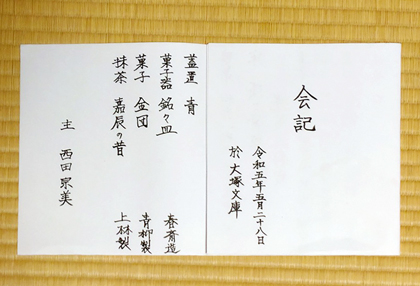 会記
令和五年五月二十八日
於 大塚文庫
蓋置 青
菓子器 銘々皿 春斎造
菓子 金団 青柳製
抹茶 嘉辰の昔 上林製
主 西田宗美